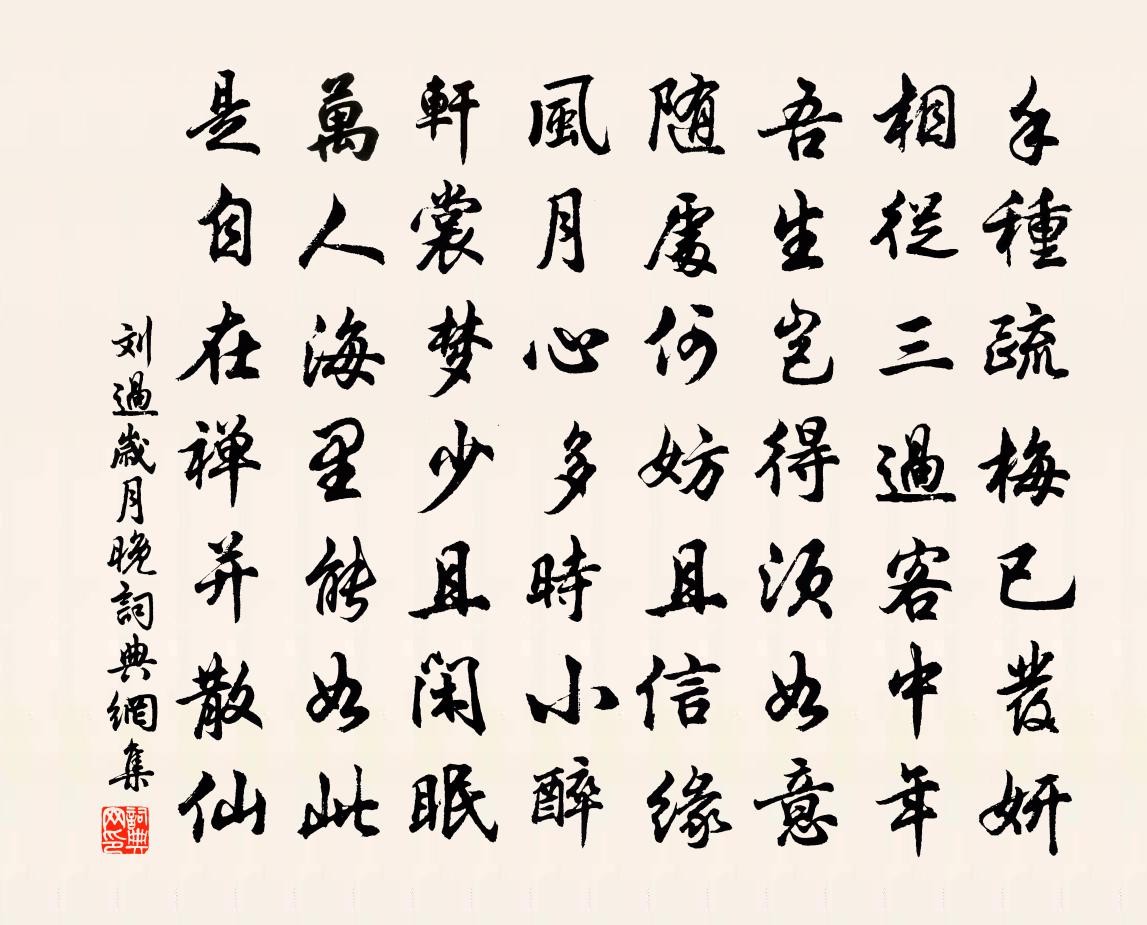 手種疏梅已發妍
相從三過客中年
吾生豈得須如意
随處何妨且信緣
風月心多時小醉
軒裳梦少且閑眠
萬人海里能如此
是自在禅并散仙
刘過歲月晚詞典網集
詞典网印